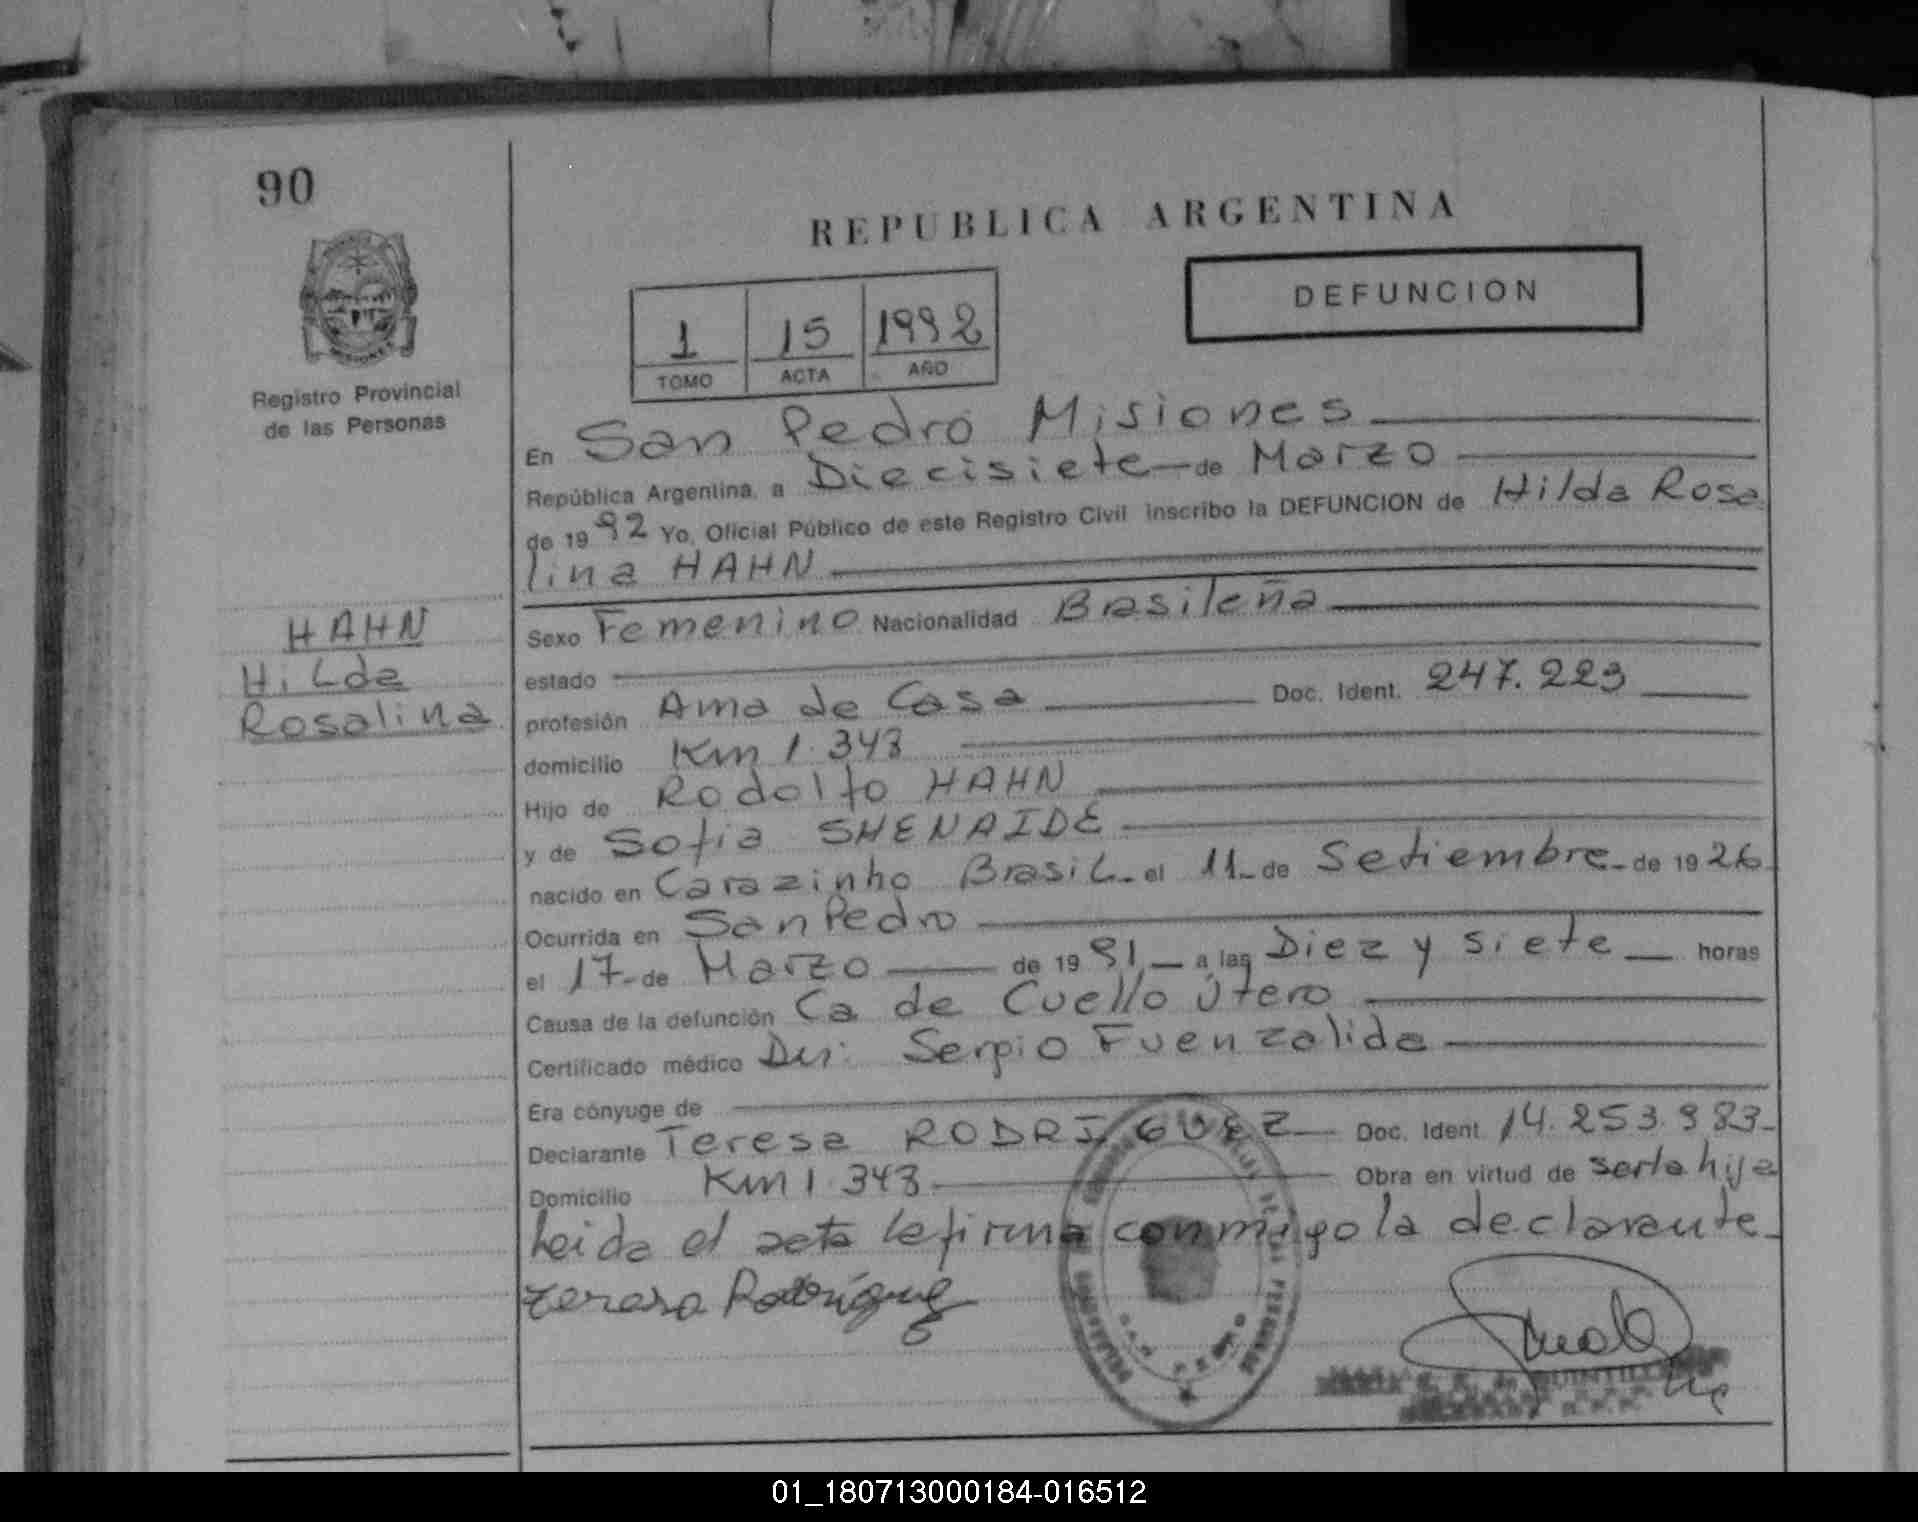 90
REPUBLICA ARGENTINA
DEFUNCION
1 15 1992
TOMO ACTA AÑO
MISIONES
Registro Provincial
de las Personas
En San Pedro Misiones
República Argentina, a Diecisiete de Marzo
de 1992 Yo, Oficial Público de este Registro Civil inscribo la DEFUNCION de Hilda Rosa
lina HAHN
HAHN
Hilda
Rosalina
Sexo Femenino Nacionalidad Brasileña
estado
profesión Ama de Casa Doc. Ident. 247.223
domicilio Km 1.343
Hijo de Rodolfo HAHN
y de Sofia SHENAIDE
nacido en Carazinho Brasil el 11 de Setiembre de 1926
Ocurrida en San Pedro
el 17 de Marzo de 1991 a las Diez y siete horas
Causa de la defunción Ca de Cuello Útero
Certificado médico Dr: Sergio Fuenzalida
Era cónyuge de
Declarante Teresa RODRIGUEZ Doc. Ident. 14.253.983
Domicilio Km 1.343 Obra en virtud de ser la hija
Leida el acta la firma conmigo la declarante
Teresa Rodríguez
01_180713000184-016512